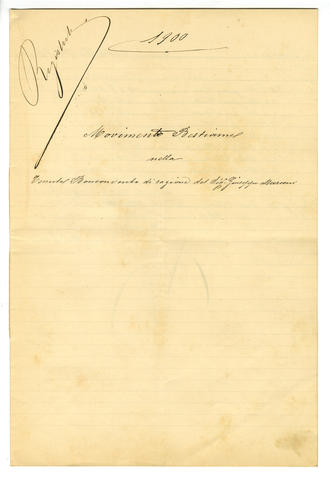 Registrato
1900
Movimento Bestiame
nella
Tenuta Bonconvento di ragione del Sig. Giuseppe